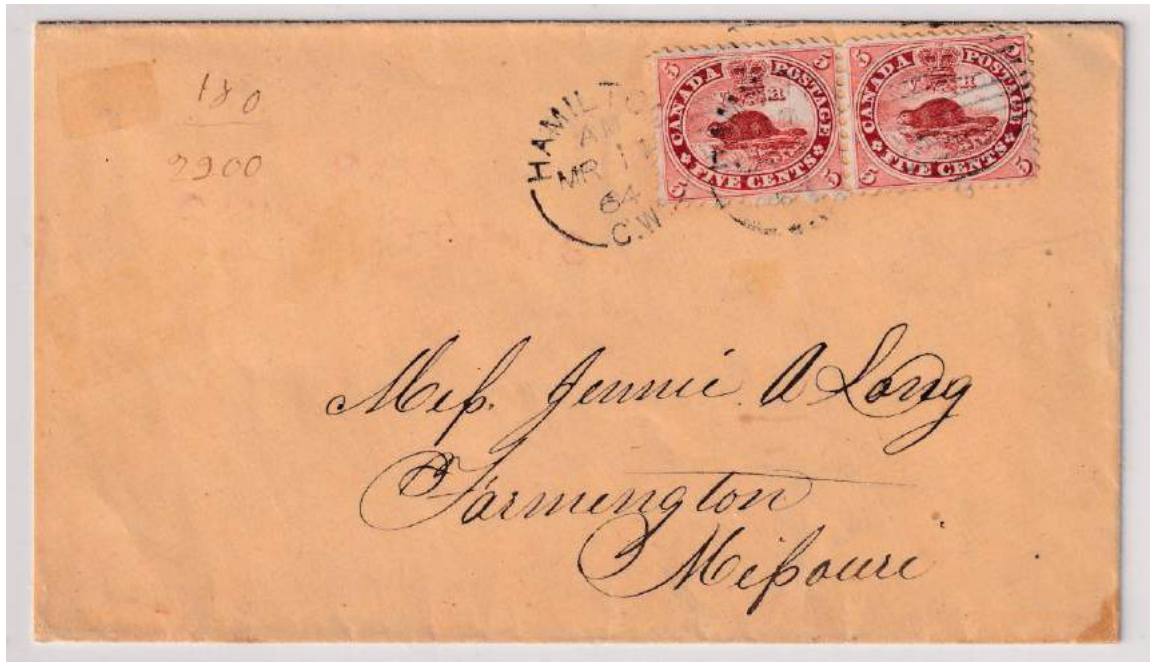 180
2900
HAMILTO
AM
MR 1
64
C.W
5 5
CANADA POSTAGE
V R
FIVE CENTS
5 5
5 5
CANADA POSTAGE
V R
FIVE CENTS
5 5
Miſs. Jennie A Long
Farmington
Miſsouri